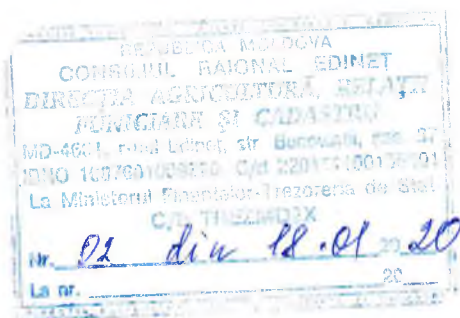 REPUBLICA MOLDOVA
CONSILIUL RAIONAL EDINEŢ
DIRECŢIA AGRICULTURĂ, RELAŢII
FUNCIARE ŞI CADASTRU
MD-4601, r-nul Edineţ, str.
IDNO C/d
La Ministerul Finanţelor-Trezoreria de Stat
C/b TREZMD2X
Nr. 02 din 18.01 2020
La nr. 20